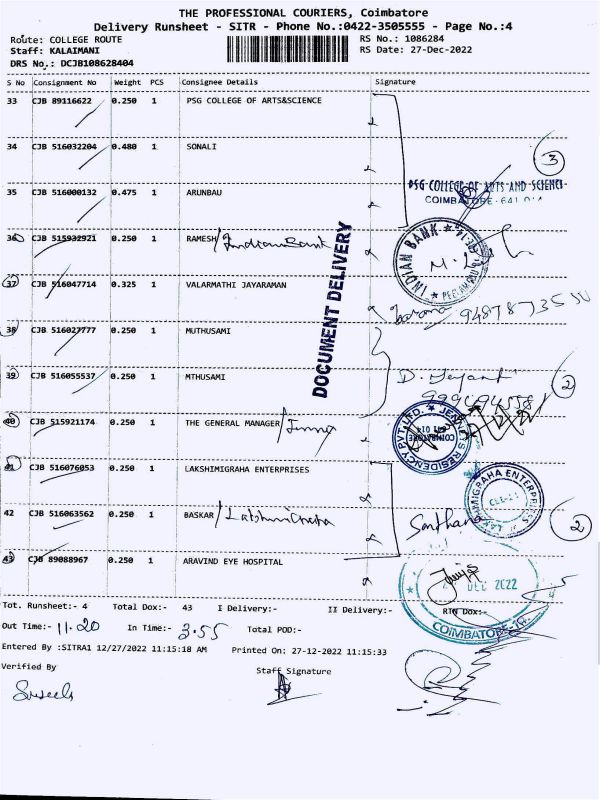 THE PROFESSIONAL COURIERS, Coimbatore
Delivery Runsheet - SITR - Phone No.:0422-3505555 - Page No.:4
Route: COLLEGE ROUTE RS No.: 1086284
Staff: KALAIMANI RS Date: 27-Dec-2022
DRS No.: DCJB108628404
S No Consignment No Weight PCS Consignee Details Signature
33 CJB 89116622 0.250 1 PSG COLLEGE OF ARTS&SCIENCE
34 CJB 516032204 0.480 1 SONALI
3
35 CJB 516000132 0.475 1 ARUNBAU
PSG COLLEGE OF ARTS AND SCIENCE
COIMBATORE - 641 014
36 CJB 515932921 0.250 1 RAMESH/Indian Bank
INDIAN BANK
DOCUMENT DELIVERY
37 CJB 516047714 0.325 1 VALARMATHI JAYARAMAN
38 CJB 516027777 0.250 1 MUTHUSAMI
39 CJB 516055537 0.250 1 MTHUSAMI
2
40 CJB 515921174 0.250 1 THE GENERAL MANAGER/
JENNEYS RESIDENCY PVT. LTD.
COIMBATORE
641 014
41 CJB 516076053 0.250 1 LAKSHIMIGRAHA ENTERPRISES
42 CJB 516063562 0.250 1 BASKAR/
2
43 CJB 89088967 0.250 1 ARAVIND EYE HOSPITAL
DEC 2022
COIMBATORE-14
Tot. Runsheet:- 4 Total Dox:- 43 I Delivery:- II Delivery:- RTN Dox:-
Out Time:- 11.20 In Time:- 3.55 Total POD:-
Entered By :SITRA1 12/27/2022 11:15:18 AM Printed On: 27-12-2022 11:15:33
Verified By Staff Signature